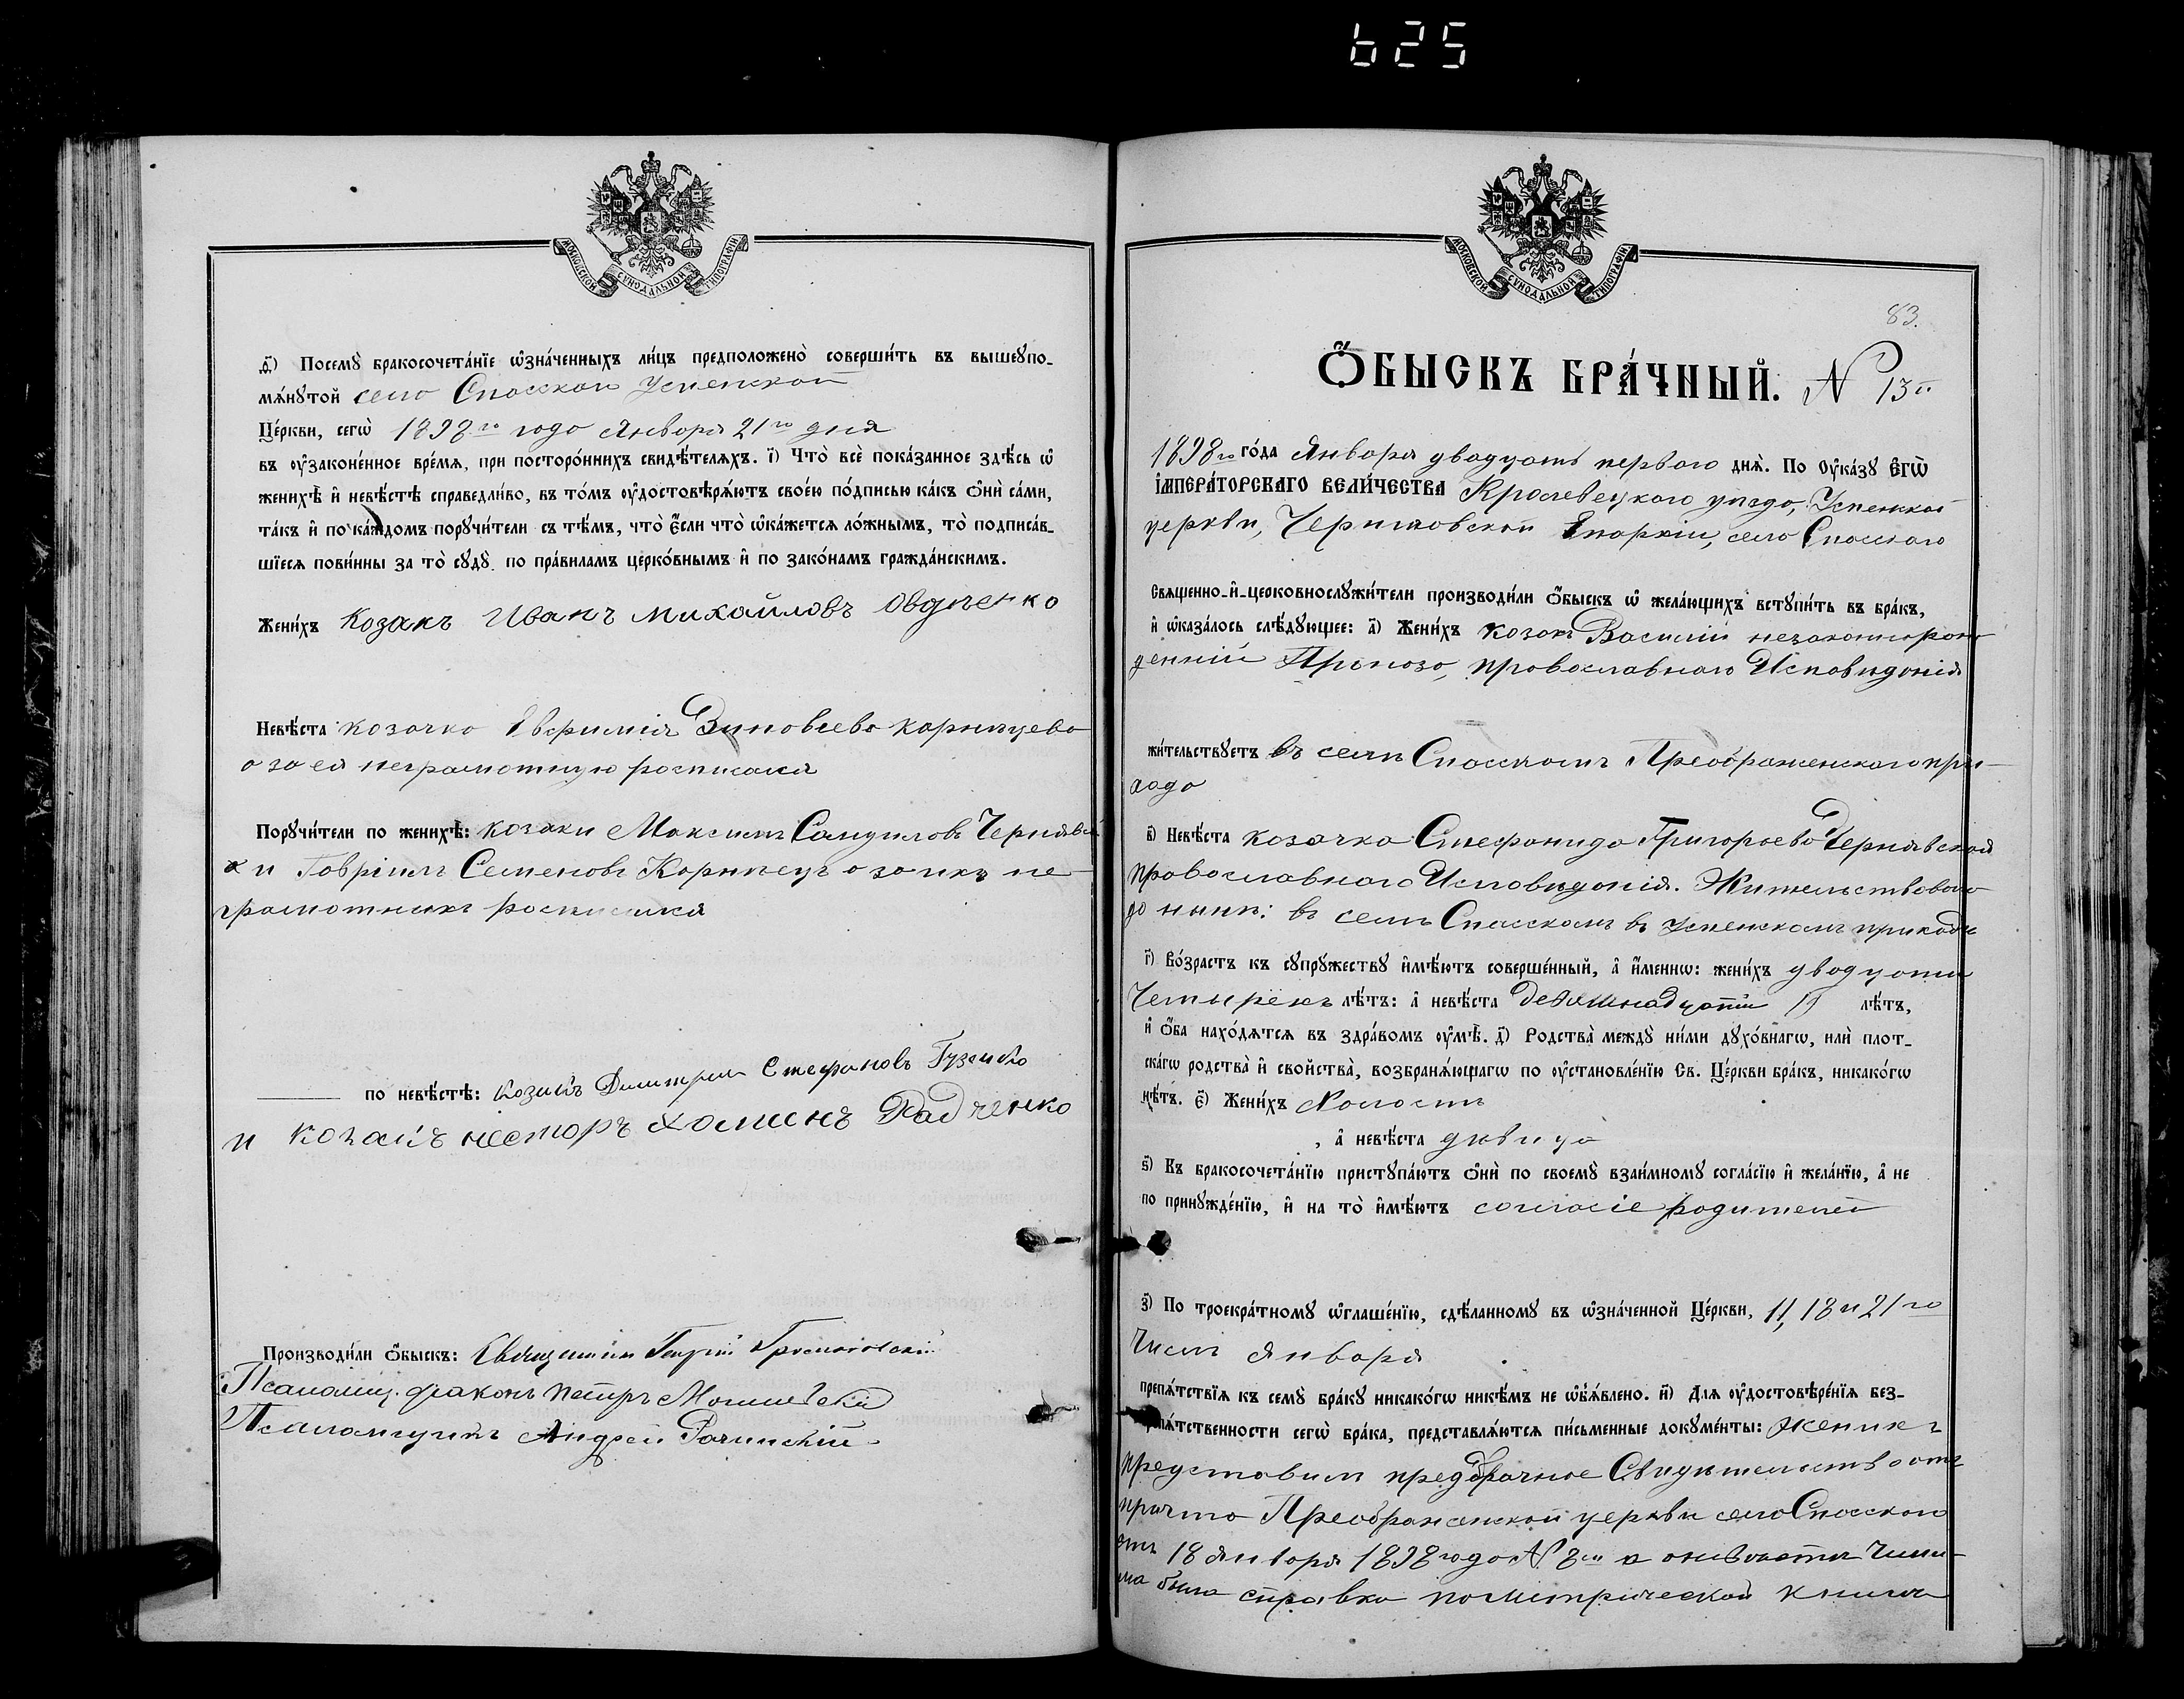 625
МОСКОВСКОЙ СѴНОДАЛЬНОЙ ТИПОГРАФІИ
д҃) Посемꙋ̀ бракосочета́нїе ѡ҆зна́ченныхъ ли́цъ предположено̀ соверши́ть въ вышеꙋпо-
мѧ́нꙋтой село Спасской Успенской
Це́ркви, сегѡ̀ 1898го года Января 21го дня
въ ᲂу҆законе́нное вре́мѧ, при посторо́ннихъ свидѣ́телѧхъ. і҃) Что̀ всѐ пока́занное здѣ́сь ѡ҆
женихѣ̀ и҆ невѣ́стѣ справедли́во, въ то́мъ ᲂу҆достовѣрѧ́ютъ свое́ю по́дписью ка́къ ѻ҆нѝ са́ми,
та́къ и҆ по ка́ждомъ порꙋчи́тели съ тѣ́мъ, что̀ є҆́сли что̀ ѡ҆ка́жетсѧ ло́жнымъ, то̀ подписа́в-
шїесѧ пови́нны за то̀ сꙋдꙋ̀ по пра́виламъ церко́внымъ и҆ по зако́намъ гражда́нскимъ.
Жени́хъ Козакъ Иванъ Михайловъ Овдѣенко
Невѣ́ста козачка Евфимія Зиновьева Карпѣцева
а за ея неграмотную росписался
Порꙋчи́тели по женихѣ̀: козаки Максимъ Самуиловъ Чернявск
і и Гавріилъ Семеновъ Корнѣецъ а за ихъ не-
грамотныхъ росписался
по невѣ́стѣ: Козакъ Димитрій Стефановъ Гузенко
и козакъ несторъ фоминъ Радченко
Производи́ли ѻ҆́быскъ: Священникъ
Псаломщ. діаконъ Петръ
Псаломщикъ Андрей
МОСКОВСКОЙ СѴНОДАЛЬНОЙ ТИПОГРАФІИ
83.
Ѻ҆́БЫСКЪ БРА́ЧНЫЙ. N 13й
1898го го́да Января двадцать перваго днѧ̀. По Оу҆ка́зꙋ Є҆гѡ̀
І҆МПЕРА́ТОРСКАГО ВЕЛИ́ЧЕСТВА Кролевецкаго уѣзда, Успенской
церкви, Черниговской Епархіи, села Спасскаго
Свѧщенно-и҆-церковнослꙋжи́тели производи́ли ѻ҆́быскъ ѡ҆ жела́ющихъ встꙋпи́ть въ бра́къ,
и҆ ѡ҆каза́лось слѣ́дꙋющее: а҃) Жени́хъ козакъ Василій незаконнорож
денній православнаго Исповѣданія
жи́тельствꙋетъ въ селѣ Спасскомъ Преображенскаго при-
хода
в҃) Невѣ́ста козачка Стефанида Григорьева Чернявская
православнаго Исповѣданія. Жительствовала
до нынѣ: въ селѣ Спасскомъ въ Успенскомъ приходѣ
г҃) Во́зрастъ къ сꙋпрꙋжествꙋ и҆мѣ́ютъ соверше́нный, а҆ и҆́меннѡ: жени́хъ двадцати
четырехъ лѣ́тъ: а҆ невѣ́ста девятнадцати 19 лѣ́тъ,
и҆ ѻ҆́ба нахо́дѧтсѧ въ здра́вомъ ᲂу҆мѣ̀. д҃) Родства̀ междꙋ̀ ни́ми дꙋхо́внагѡ, илѝ плот-
ска́гѡ родства̀ и҆ сво́йства̀, возбранѧ́ющагѡ по ᲂу҆становле́нїю Св. Це́ркви бра́къ, никако́гѡ
нѣ́тъ. є҃) Жени́хъ холостъ
, а҆ невѣ́ста дѣвица
ѕ҃) Къ бракосочета́нїю пристꙋпа́ютъ ѻ҆нѝ по своемꙋ̀ взаи́мномꙋ согла́сїю и҆ жела́нїю, а҆ не
по принꙋжде́нїю, и҆ на то̀ и҆мѣ́ютъ согласіе родителей
з҃) По троекра́тномꙋ ѡ҆глаше́нїю, сдѣ́ланномꙋ въ ѡ҆зна́ченной Це́ркви, 11, 18 и 21го
числъ Января
препѧ́тствїѧ къ семꙋ̀ бра́кꙋ никако́гѡ никѣ́мъ не ѡ҆б̾ѧ́влено. и҃) Длѧ ᲂу҆достовѣре́нїѧ без-
препѧ́тственности сегѡ̀ бра́ка, представлѧ́ютсѧ пи́сьменные докꙋме́нты: женихъ
представилъ предбрачное Свидѣтельство отъ
причта Преображенской церкви села Спасскаго
отъ 18 января 1898 года N 8й а о невѣстѣ чине-
на была справка по метрической книгѣ